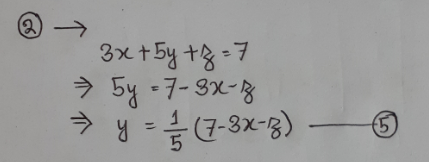 ② →
3x+5y+z=7
⇒ 5y = 7-3x-z
⇒ y = 1/5 (7-3x-z) —— ⑤